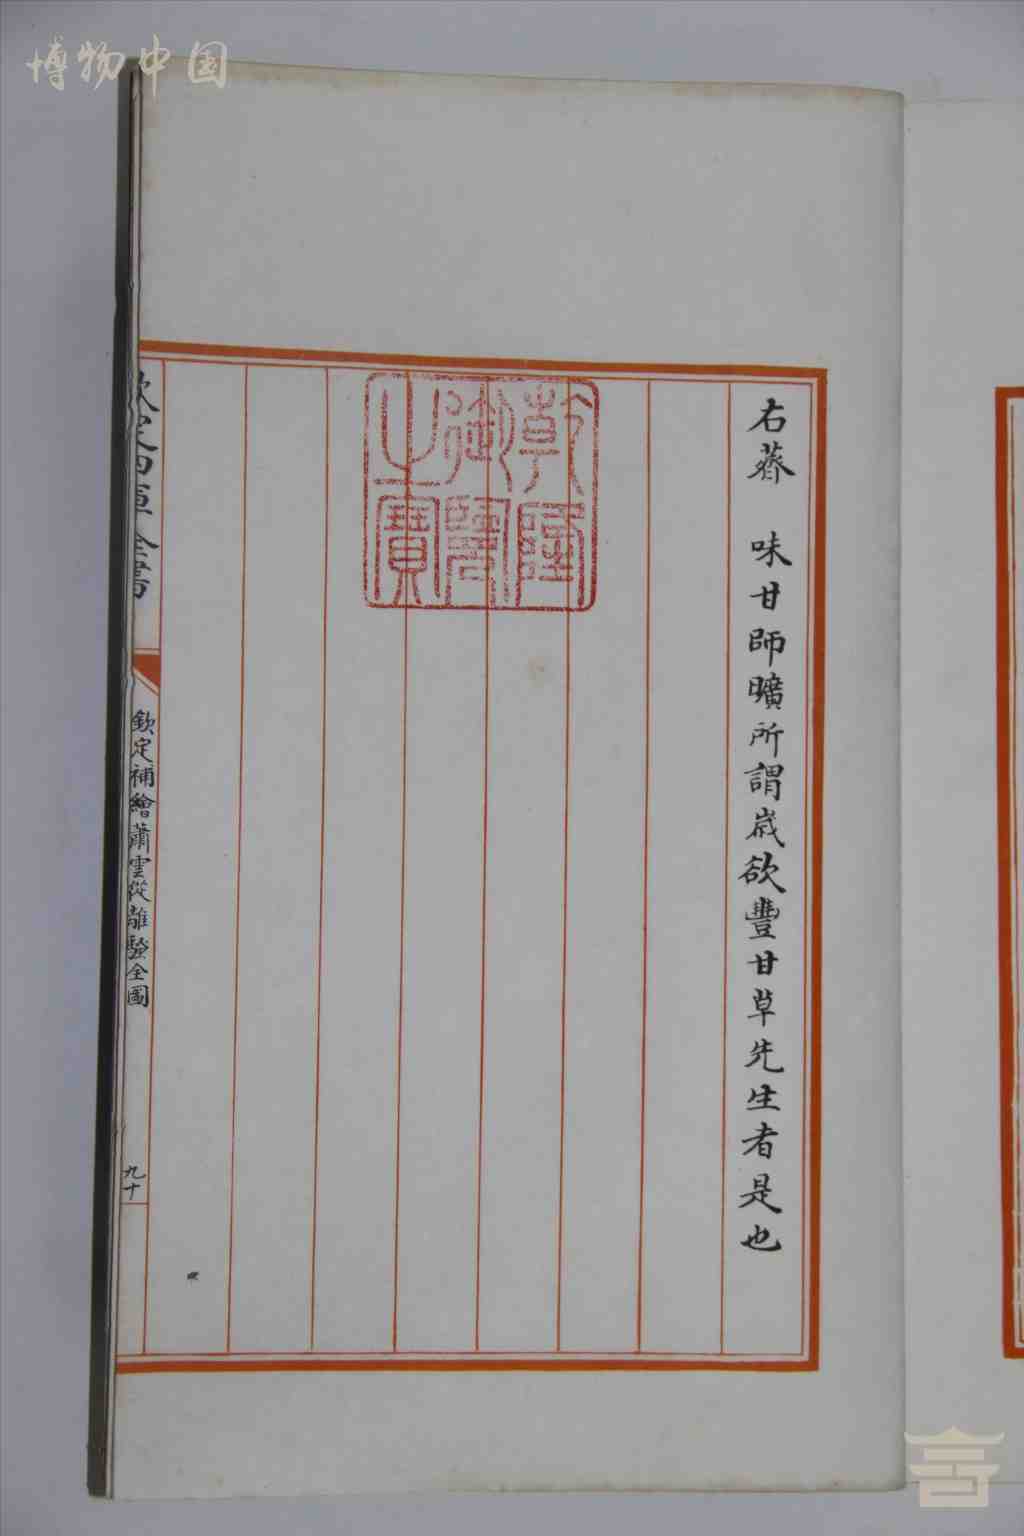 博物中国
右薺　味甘師曠所謂歲欲豐甘草先生者是也
乾隆
御覽
之寶
欽定四庫全書
欽定補繪蕭雲從離騷全圖
九十